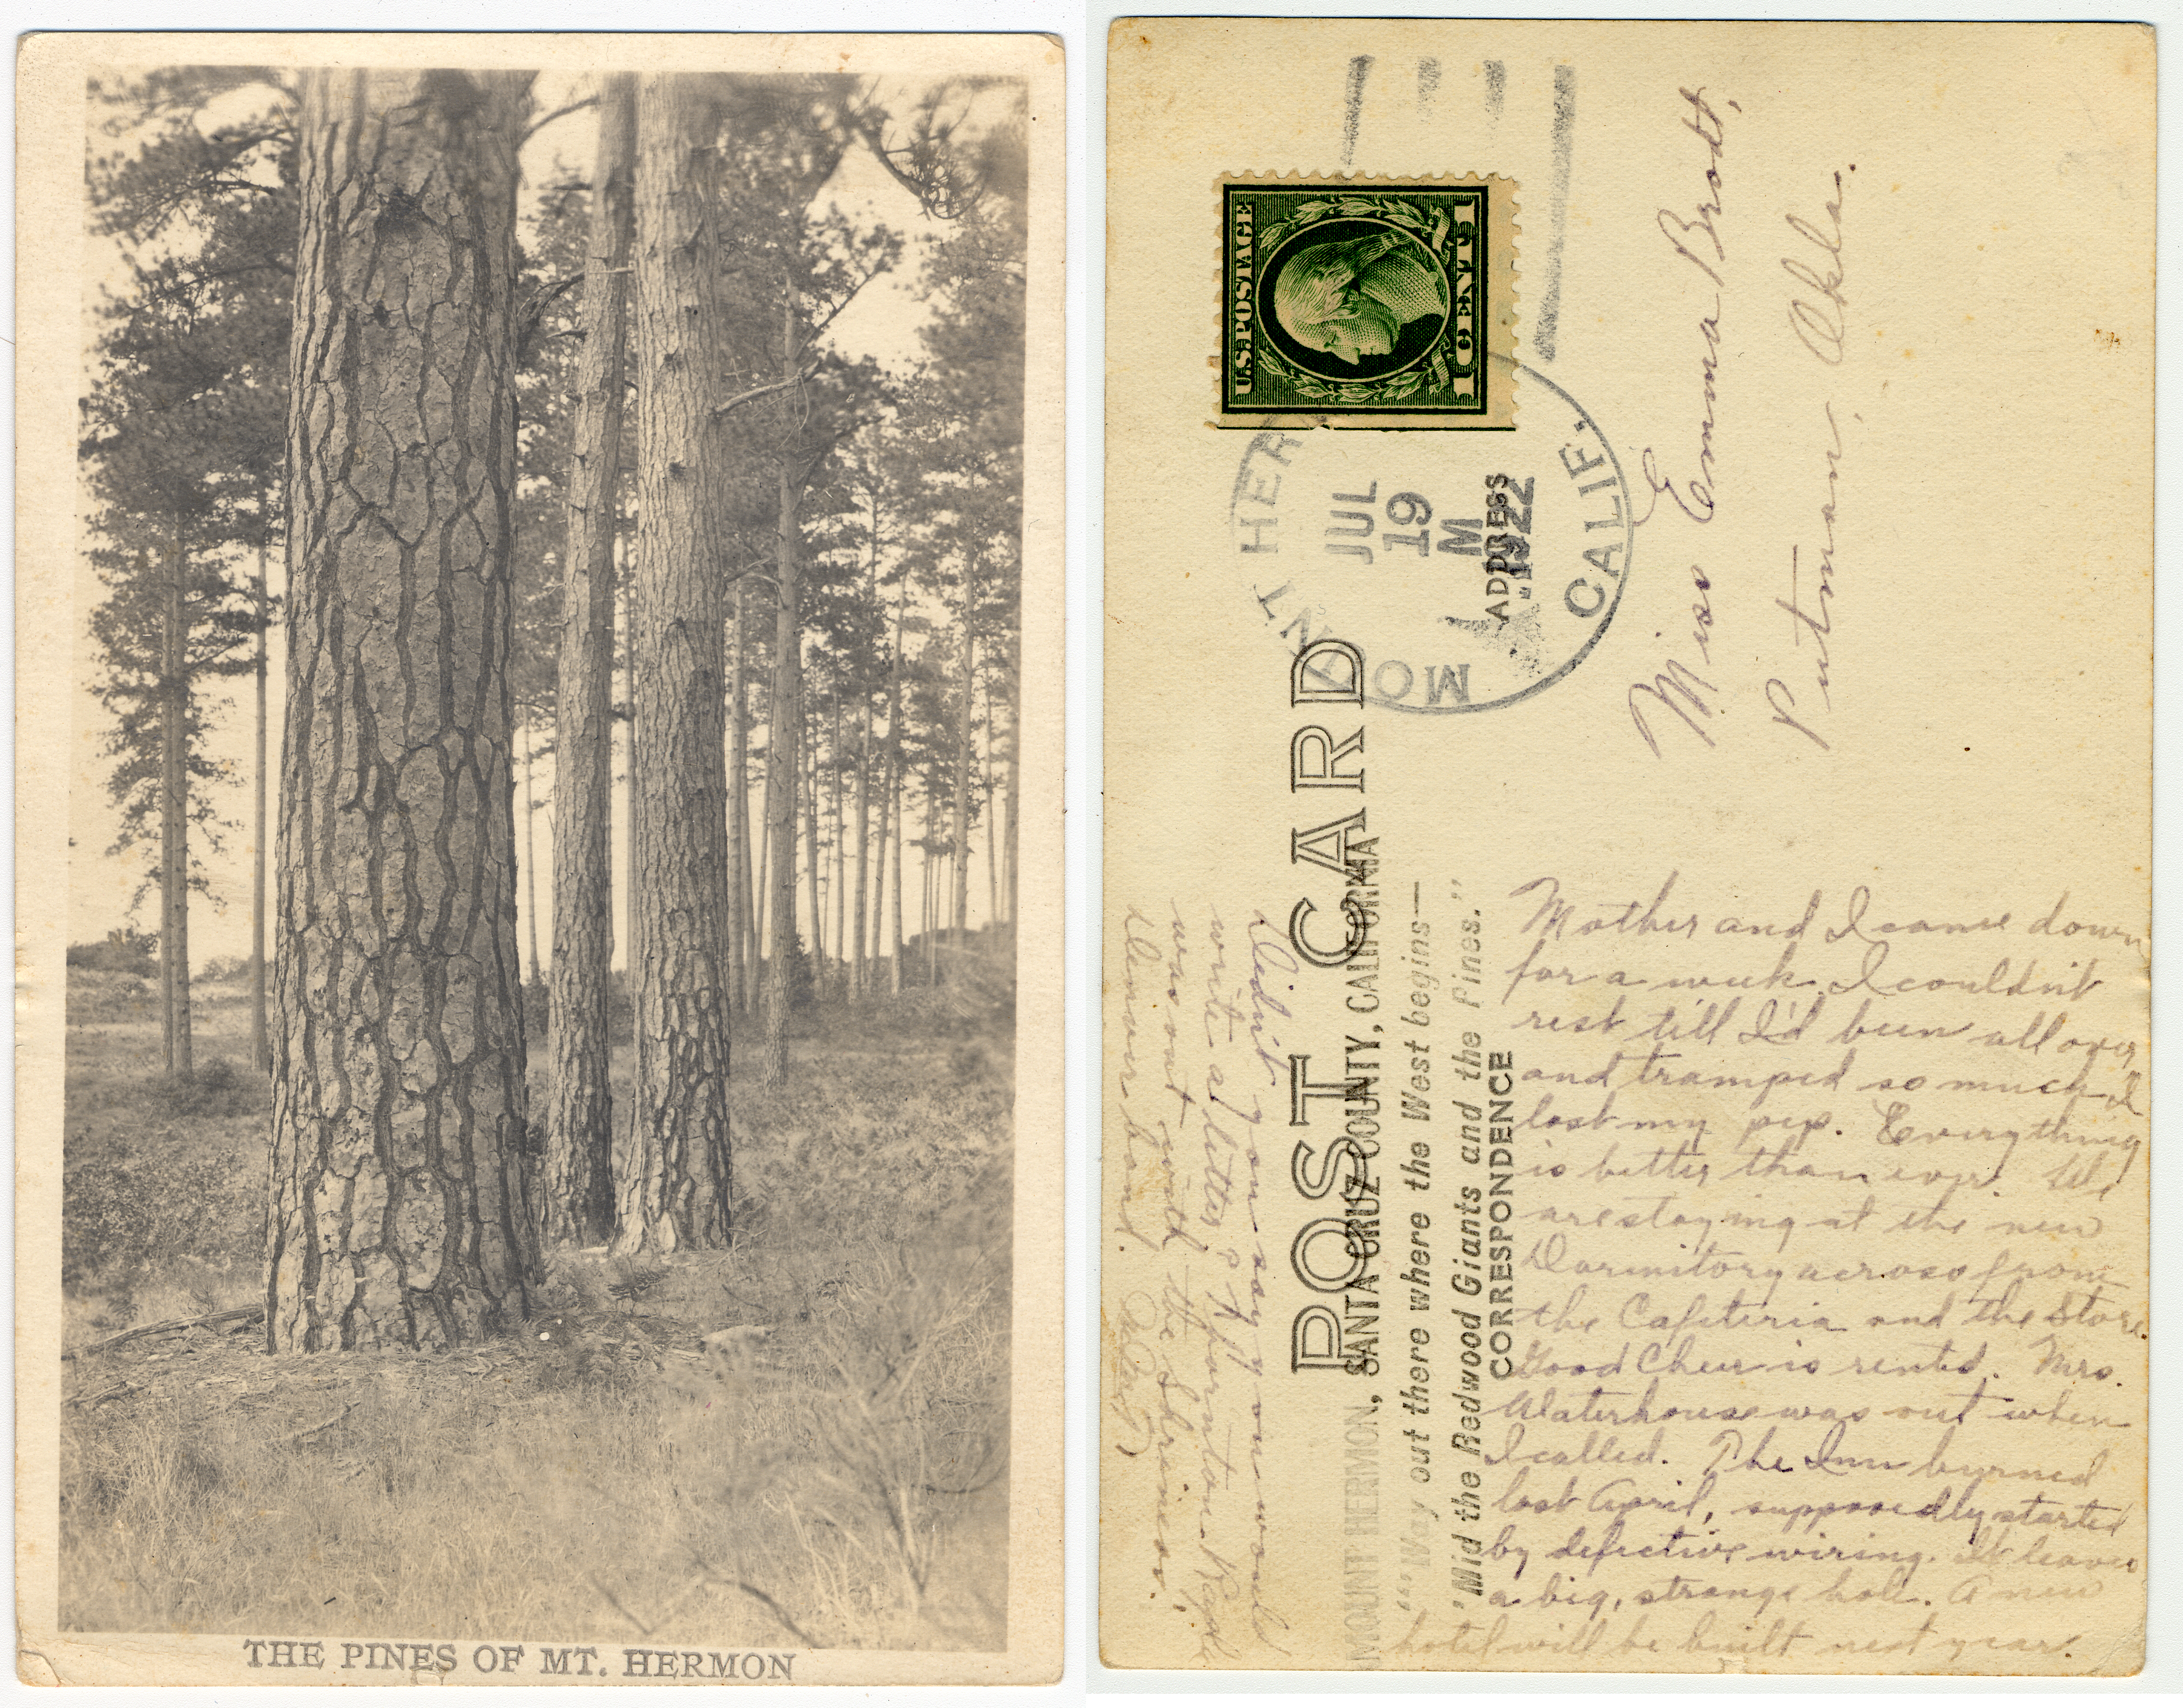 THE PINES OF MT. HERMON
U.S. POSTAGE
1 CENT 1
MOUNT HER
JUL
19
M
1922
CALIF.
POST CARD
MOUNT HERMON, SANTA CRUZ COUNTY, CALIFORNIA
"'Way out there where the West begins—
'Mid the Redwood Giants and the Pines."
CORRESPONDENCE
ADDRESS
Miss Emma Brodt,
Putman, Okla.
Mother and I came down
for a week. I couldn't
rest till I'd been all over
and tramped so much I
lost my pep. Everything
is better than ever. We
are staying at the new
Dormitory across from
the Cafeteria and the Store.
Good Cheer is rented. Mrs.
Waterhouse was out when
I called. The Inn burned
last April, supposedly started
by defective wiring. It leaves
a big, strange hole. A new
hotel will be built next year.
Didn't you say you would
write a letter?
was out with the